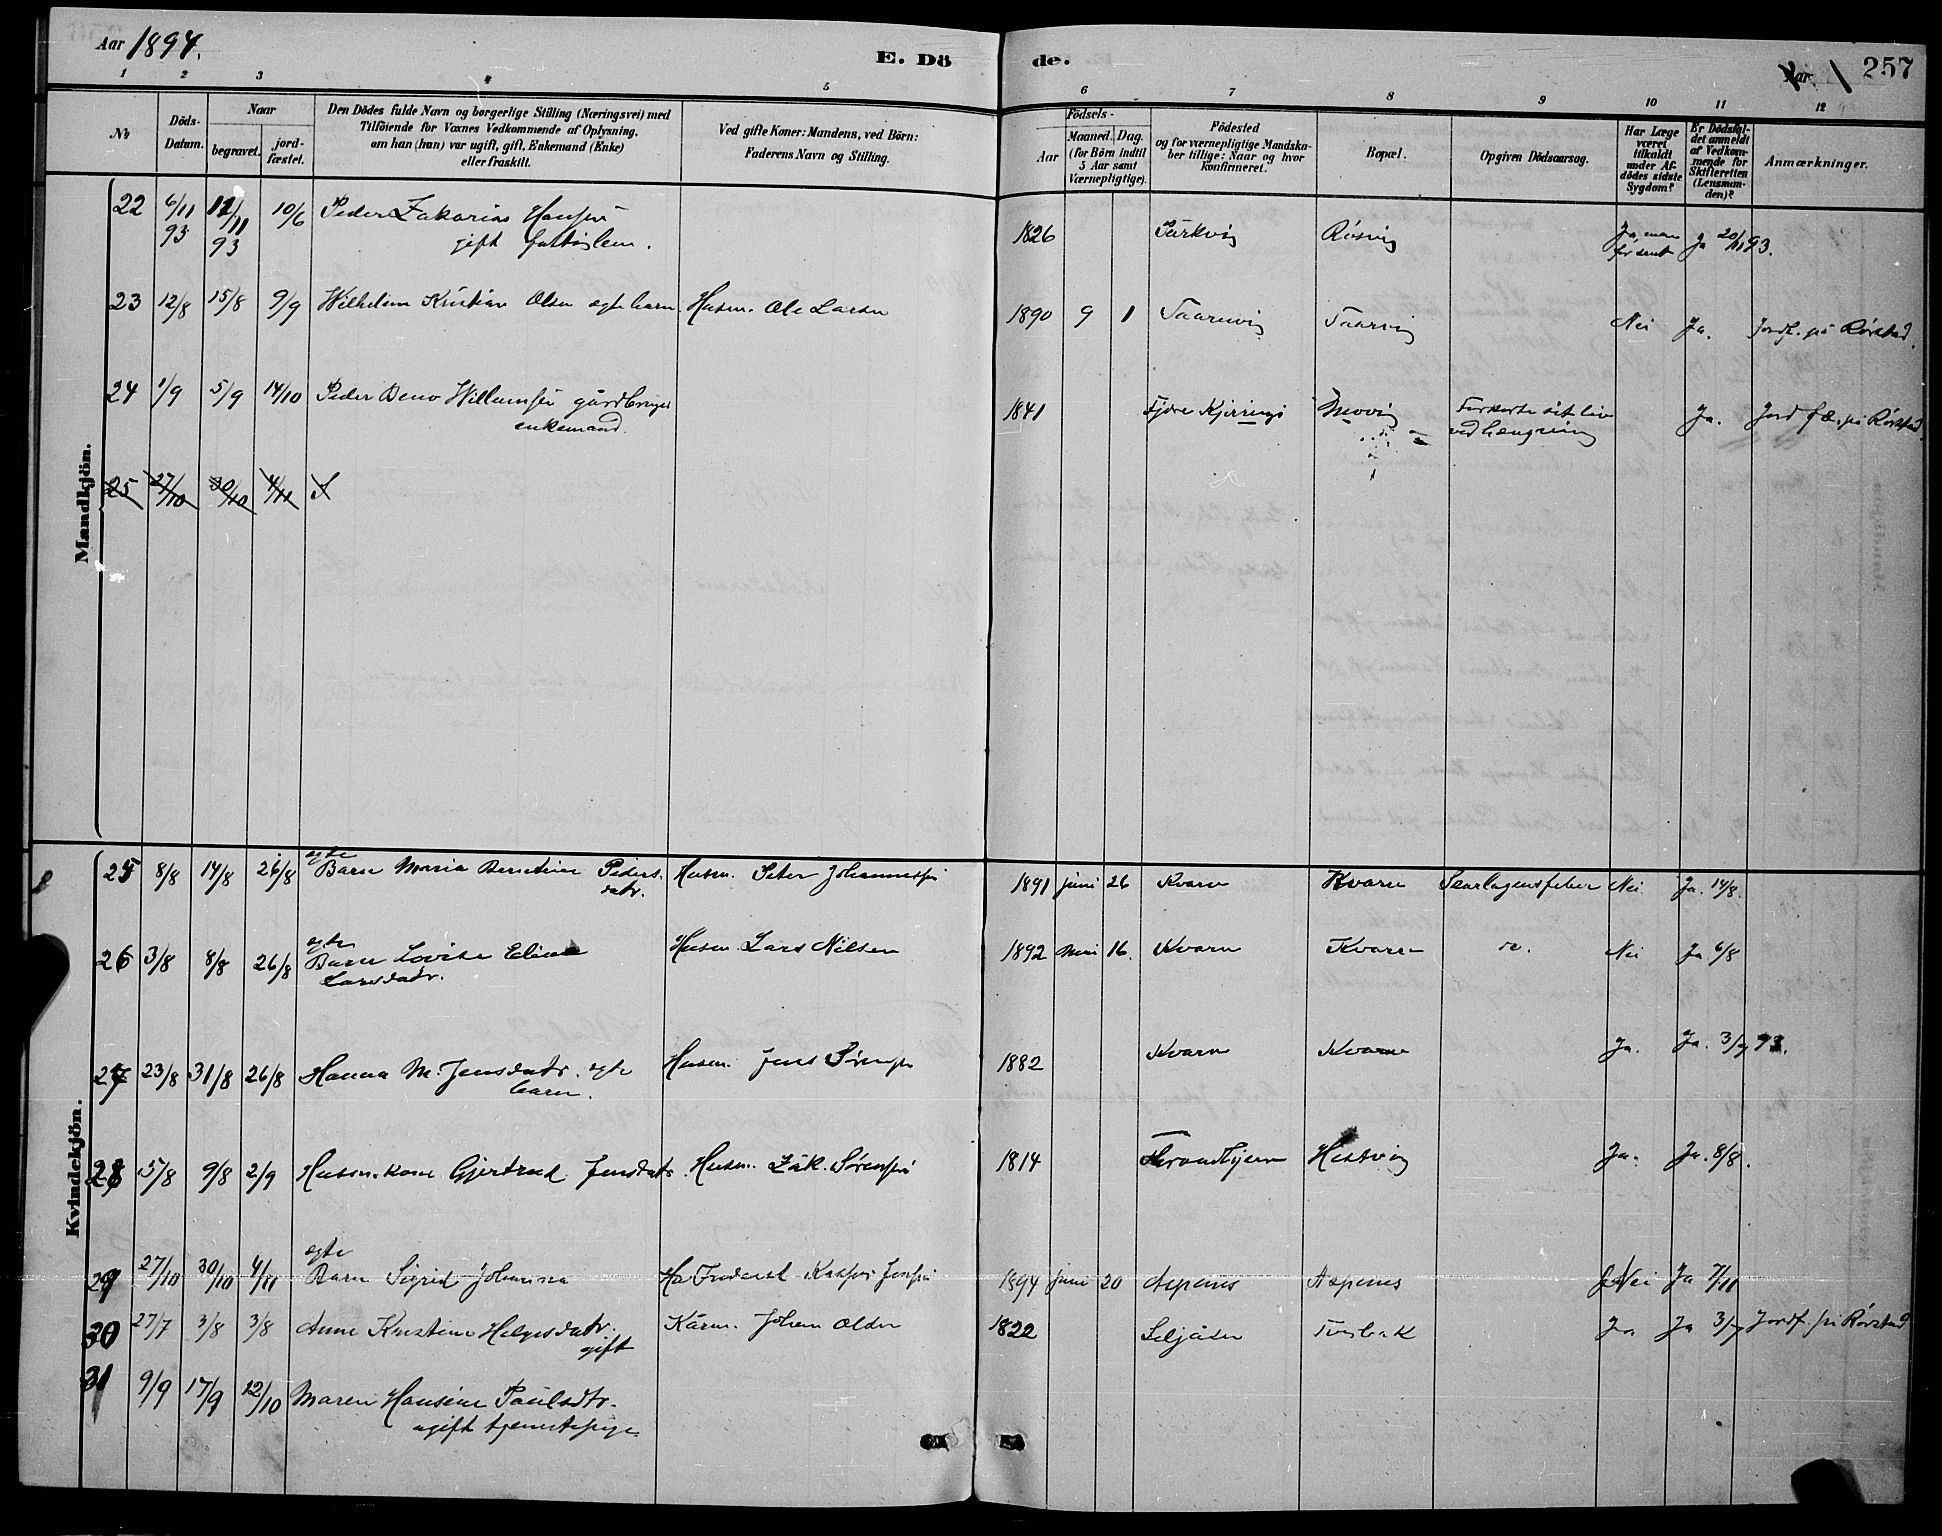 Aar 1894.
E. Dö
de.
Aar
257
1 2 3 4 5 6 7 8 9 10 11 12
No
Döds-
Datum.
Naar
begravet.
jord-
fæstet.
Den Dödes fulde Navn og borgerlige Stilling (Næringsvei) med
Tilföiende for Voxnes Vedkommende af Oplysning,
om han (hun) var ugift, gift, Enkemand (Enke)
eller fraskilt.
Ved gifte Koner: Mandens, ved Börn:
Faderens Navn og Stilling.
Födsels-
Aar
Maaned. Dag.
(for Börn indtil
5 Aar samt
Værnepligtige).
Födested
og for værnepligtige Mandska-
ber tillige: Naar og hvor
konfirmeret.
Bopæl.
Opgiven Dödsaarsag.
Har Læge
været
tilkaldt
under Af-
dödes sidste
Sygdom?
Er Dödsfal-
det anmeldt
af Vedkom-
mende for
Skifteretten
(Lensman-
den)?
Anmærkninger.
Mandkjön.
22 6/11 93 11/11 93 10/6 Peder Zakarias Hansen
gift
1826 Røsvig Ja, men for sent Ja 20/11 93.
23 12/8 15/8 9/9 Wilhelm Kristian Olsen egte barn Husm. Ole Larsen 1890 9 1 Taarnvig Taarvig Nei Ja. Jordf. på Rørstad.
24 1/9 5/9 14/10 Peder Beno Willumsen gårdbruger
enkemand.
1841 Fjære Kjerringø Movig Forkortede sit liv
ved hængning
Ja. Jordfæ. på Rørstad.
25 27/10 30/10 4/11 S
Kvindekjön.
25 8/8 14/8 26/8 egte
Barn Maria Berntine Peders-
datr.
Husm. Peter Johannessen 1891 juni 26 Kvarv Kvarv Scarlagensfeber Nei Ja. 14/8.
26 3/8 8/8 26/8 egte
Barn Lovise Eline
Larsdatr.
Husm. Lars Nilsen 1892 Mai 16. Kvarv Kvarv do. Nei Ja 6/8
27 23/8 31/8 26/8 Hanna M. Jensdatr. egte
barn.
Husm. Jens Sørensen 1882 Kvarv Kvarv Ja. Ja. 3/9 93.
28 5/8 9/8 2/9 Husm.kone Gjertrud Jensdatr. Husm. Zak. Sørensen 1814 Throndhjem Hestvig Ja. Ja. 8/8.
29 27/10 30/10 4/11 egte
Barn Sigrid Johanna
1894 juni 20 Aspenes Aspenes Nei Ja 7/11
30 27/7 3/8 3/8 Anne Kristine Helgesdatr.
gift
Kårm. Johan Olsen 1822 Seljåsen Tverbak Ja Ja 3/9 Jordf. på Rørstad
31 9/9 17/9 12/10 Maren Hansine Paulsdtr.
ugift tjenestepige